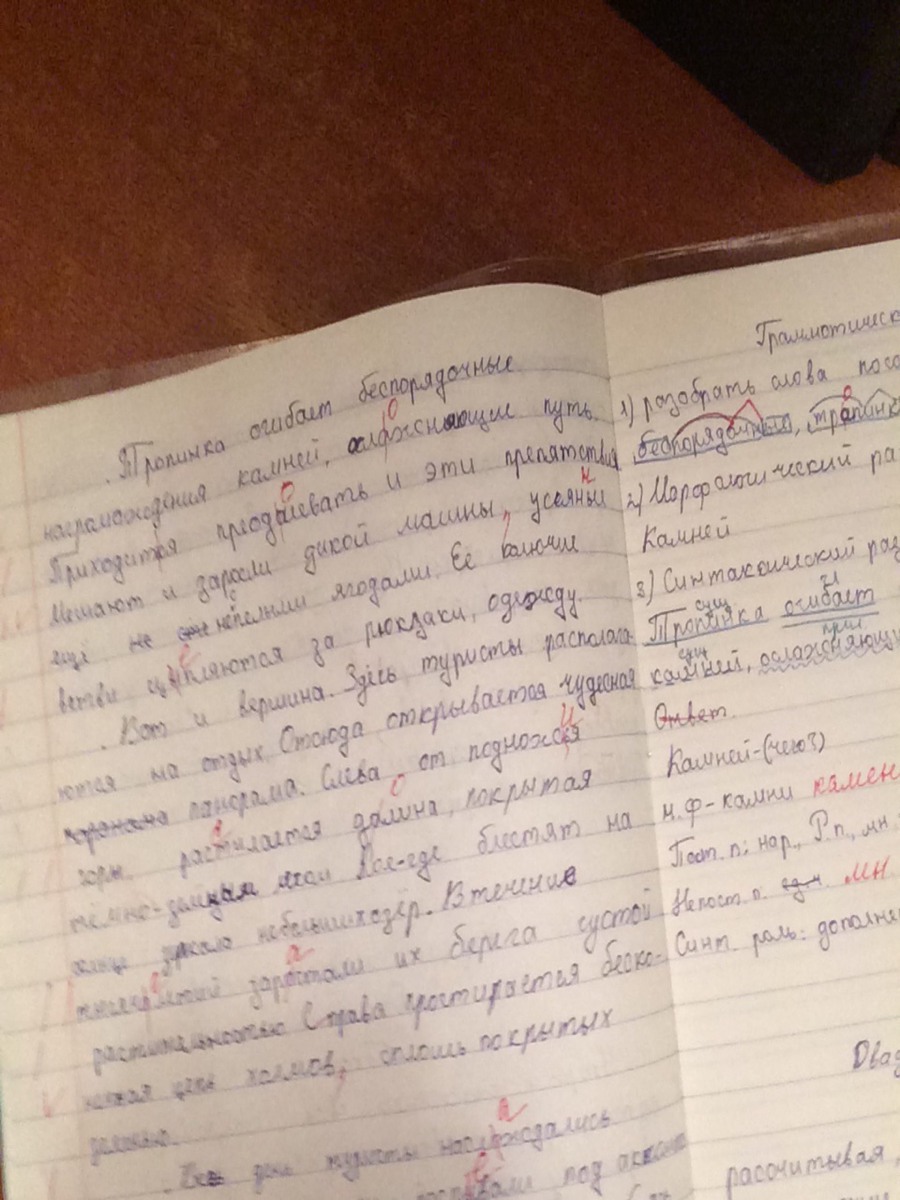 Тропинка огибает беспорядочные
нагромождения камней, ослажняющие путь.
Приходится преодалевать и эти препятствия
Мешают и заросли дикой машины, усеяные
ещё не спелыми ягодами. Её колючие
ветви цепляются за рюкзаки, одежду.
Вот и вершина. Здесь туристы распола-
ются на отдых. Отсюда открывается чудесная
панорама. Слева от подножья
горы растилается далина, покрытая
темно- лесом Кое-где блестят на
зеркала небольших озёр. В течение
заростали их берега густой
растительностью Справа простирается беско-
нечная цепь холмов, сплошь покрытых
зеленью.
день туристы наслождались
под
Граммотическ
1) разобрать слова
беспорядочный, трапинк
2) Морфологический ра
Камней
3) Синтаксический раз
сущ гл
Тропинка огибает
сущ прил
камней, ослажняющи
Ответ.
Камней-(чего?)
н. ф-камни камен
Пост. п: нар., Р.п., мн.
Непост. п. ед.ч. мн
Синт. роль: дополне
Два
расочитывая,